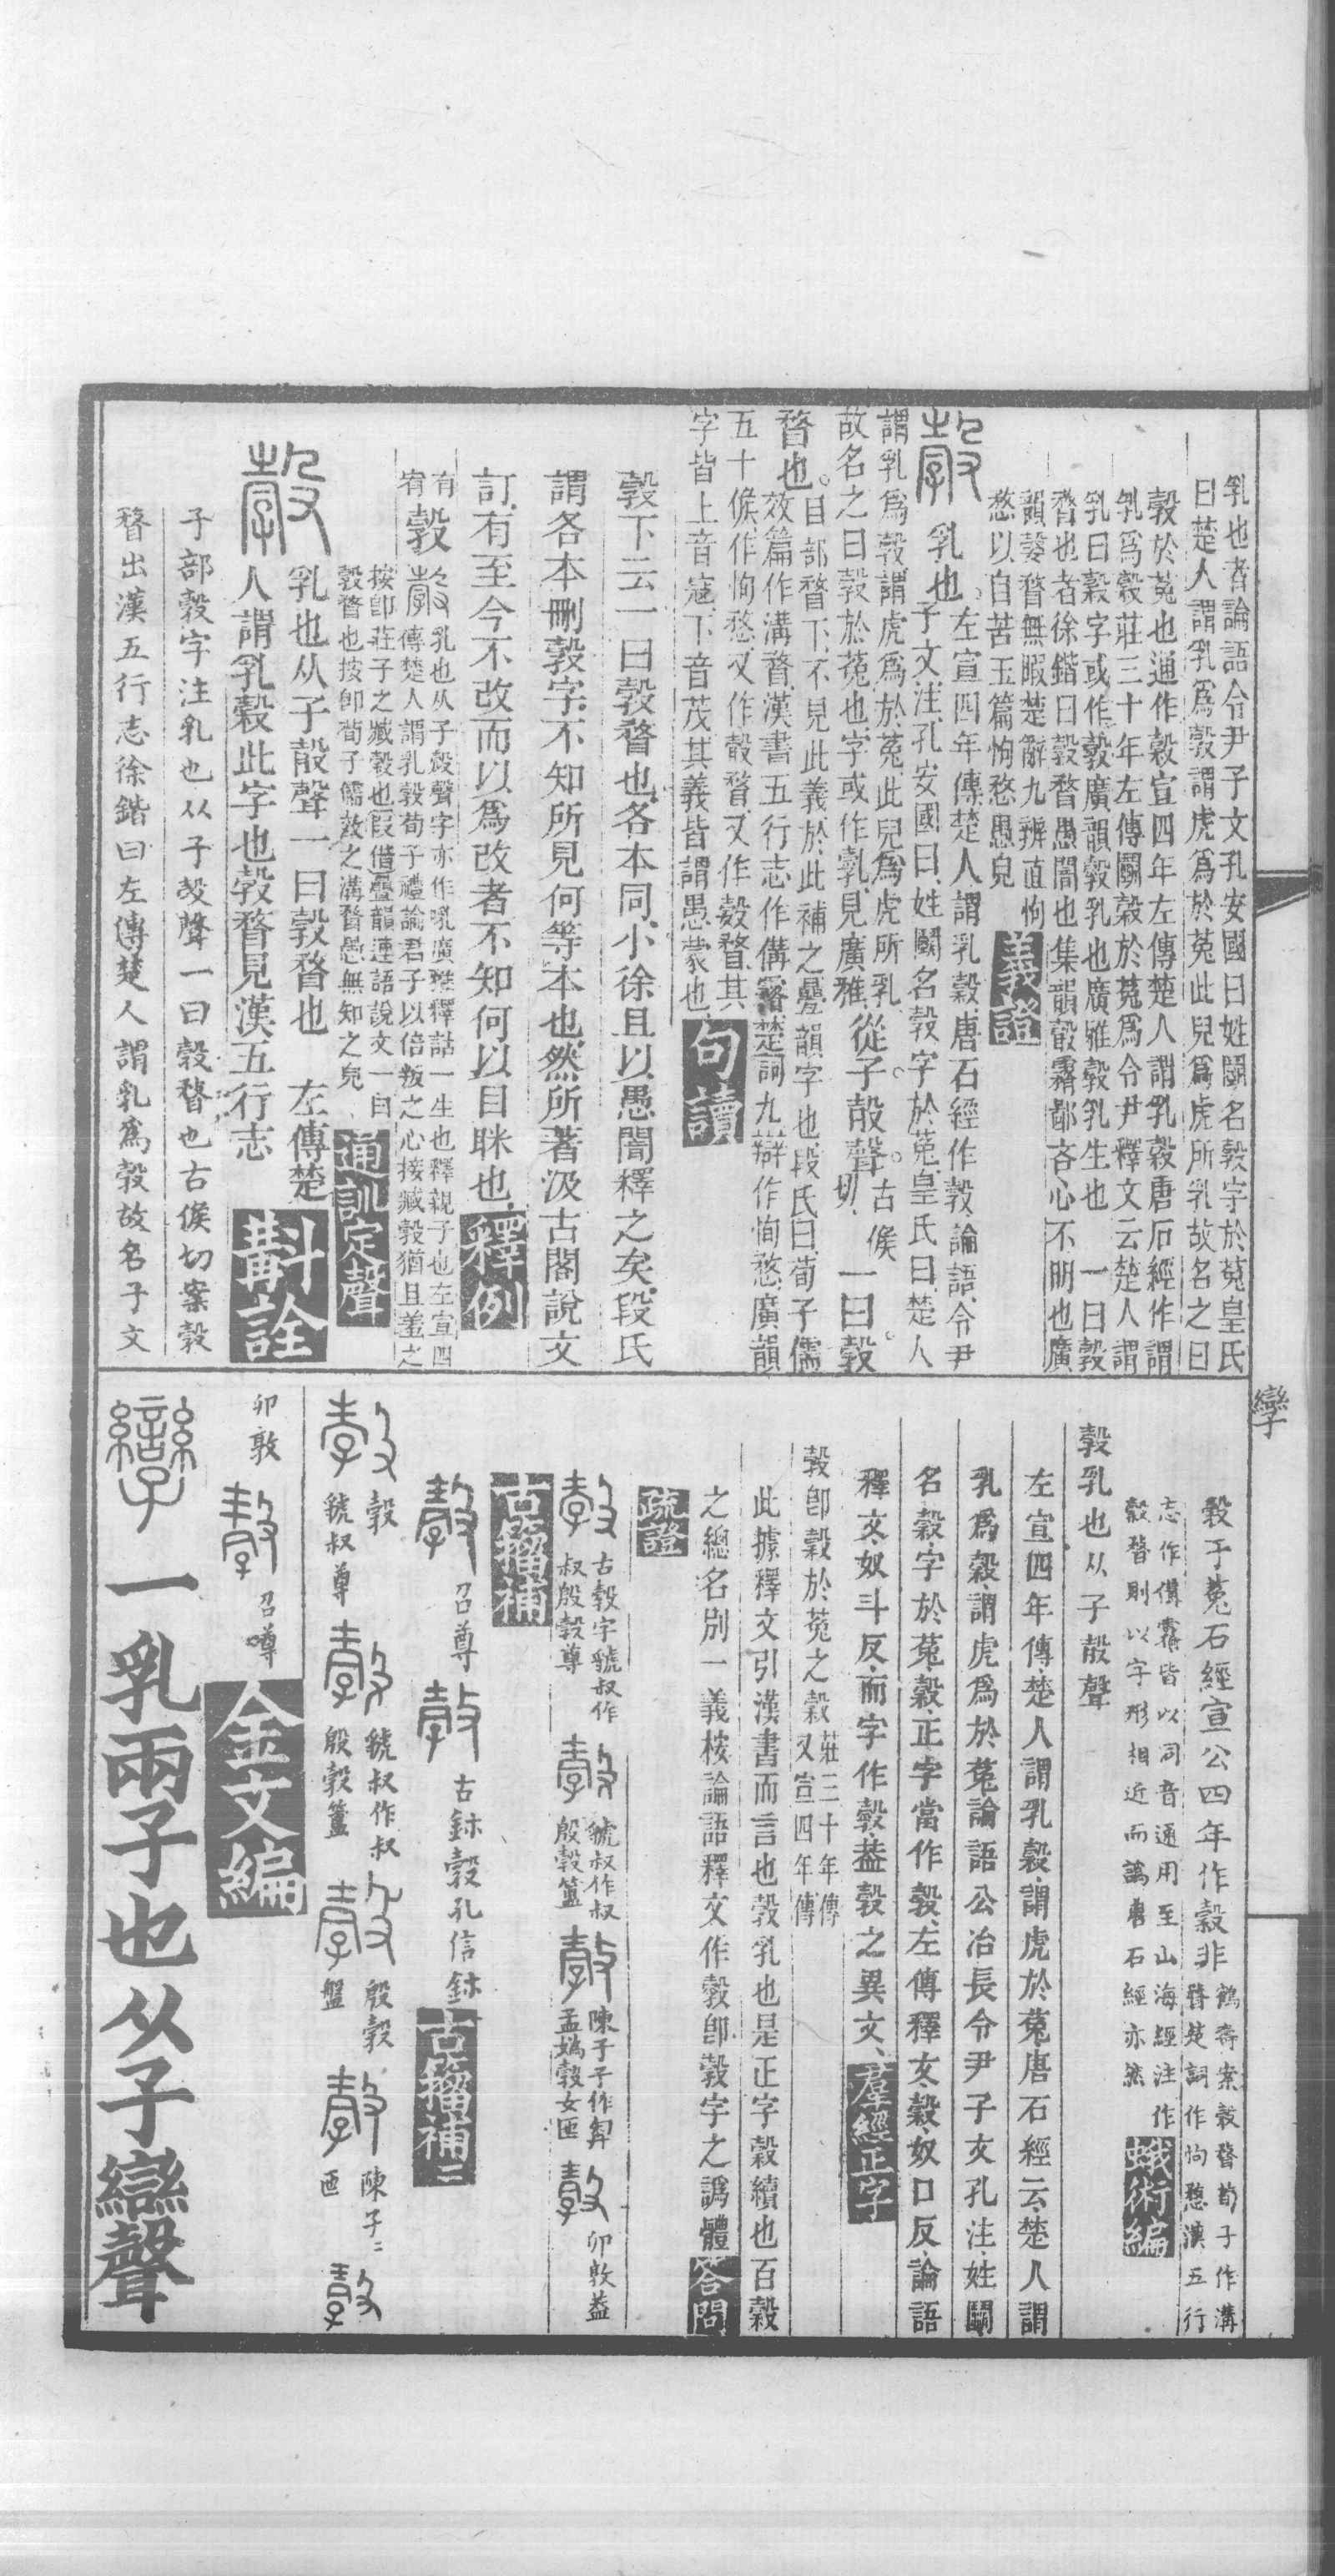 乳也者論語令尹子文孔安國曰姓鬬名㝅字於菟皇氏
曰楚人謂乳爲㝅謂虎爲於菟此兒爲虎所乳故名之曰
㝅於菟也通作穀宣四年左傳楚人謂乳穀唐石經作謂
乳爲穀莊三十年左傳鬬穀於菟爲令尹釋文云楚人謂
乳曰穀字或作㝅廣韻㝅乳也廣雅㝅乳生也 一曰㝅
瞀也者徐鍇曰㝅瞀愚闇也集韻㝅霿鄙吝心不明也廣
韻婺瞀無暇楚辭九辨直怐
愗以自苦玉篇怐愗愚皃
義證
乳也
左宣四年傳楚人謂乳穀唐石經作㝅論語令尹
子文注孔安國曰姓鬬名㝅字於菟皇氏曰楚人
謂乳爲㝅謂虎爲於菟此兒爲虎所乳
故名之曰㝅於菟也字或作㝅見廣雅
從子㱿聲
古候切
一曰㝅
瞀也
目部瞀下不見此義於此補之疊韻字也段氏曰荀子儒
效篇作溝瞀漢書五行志作傋霿楚詞九辯作怐愗廣韻
五十候作怐愗又作㱿瞀又作㝅瞀其
字皆上音寇下音茂其義皆謂愚蒙也
句讀
㝅下云一曰㝅瞀也各本同小徐且以愚闇釋之矣段氏
謂各本刪㝅字不知所見何等本也然所著汲古閣說文
訂有至今不改而以爲改者不知何以目眯也
釋例
有㝅
乳也从子㱿聲字亦作㝅廣雅釋詁一生也釋親子也左宣四
傳楚人謂乳㝅荀子禮論君子以倍叛之心接臧㝅猶且羞之
按卽莊子之臧穀也叚借疊韻連語說文一曰
㝅瞀也按卽荀子儒效之溝瞀愚無知之皃
通訓定聲
乳也从子㱿聲一曰㝅瞀也 左傳楚
人謂乳穀此字也㝅瞀見漢五行志
斠詮
子部㝅字注乳也从子㱿聲一曰㝅瞀也古候切案㝅
瞀出漢五行志徐鍇曰左傳楚人謂乳爲㝅故名子文
㝅于菟石經宣公四年作穀非
鶴壽案㝅瞀荀子作溝
瞀楚詞作怐愗漢五行
志作傋霿皆以同音通用至山海經注作
㝅瞀則以字形相近而譌唐石經亦然
蛾術編
㝅乳也从子㱿聲
左宣四年傳楚人謂乳穀謂虎於菟唐石經云楚人謂
乳爲穀謂虎爲於菟論語公冶長令尹子文孔注姓鬬
名穀字於菟穀正字當作㝅左傳釋文穀奴口反論語
釋文奴斗反而字作㝅葢㝅之異文
羣經正字
㝅卽穀於菟之穀
莊三十年傳
又宣四年傳
此據釋文引漢書而言也㝅乳也是正字穀續也百穀
之總名別一義按論語釋文作㝅卽㝅字之譌體
答問
疏證
古㝅字虢叔作
叔殷㝅尊
虢叔作叔
殷㝅簠
陳子子作㝃
孟嬀㝅女匜
卯敦葢
古籀補
召尊
古鉥㝅孔信鉥
古籀補二
㝅
虢叔尊
虢叔作叔
殷㝅簠
殷㝅
盤
陳子二
匜
卯敦
召尊
金文編
一乳兩子也从子䜌聲
孿